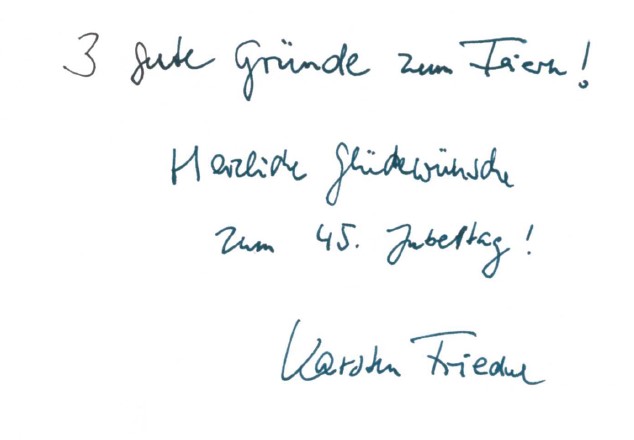 3 gute Gründe zum Feiern!
Herzliche Glückwünsche
zum 45. Jubeltag!
Karsten